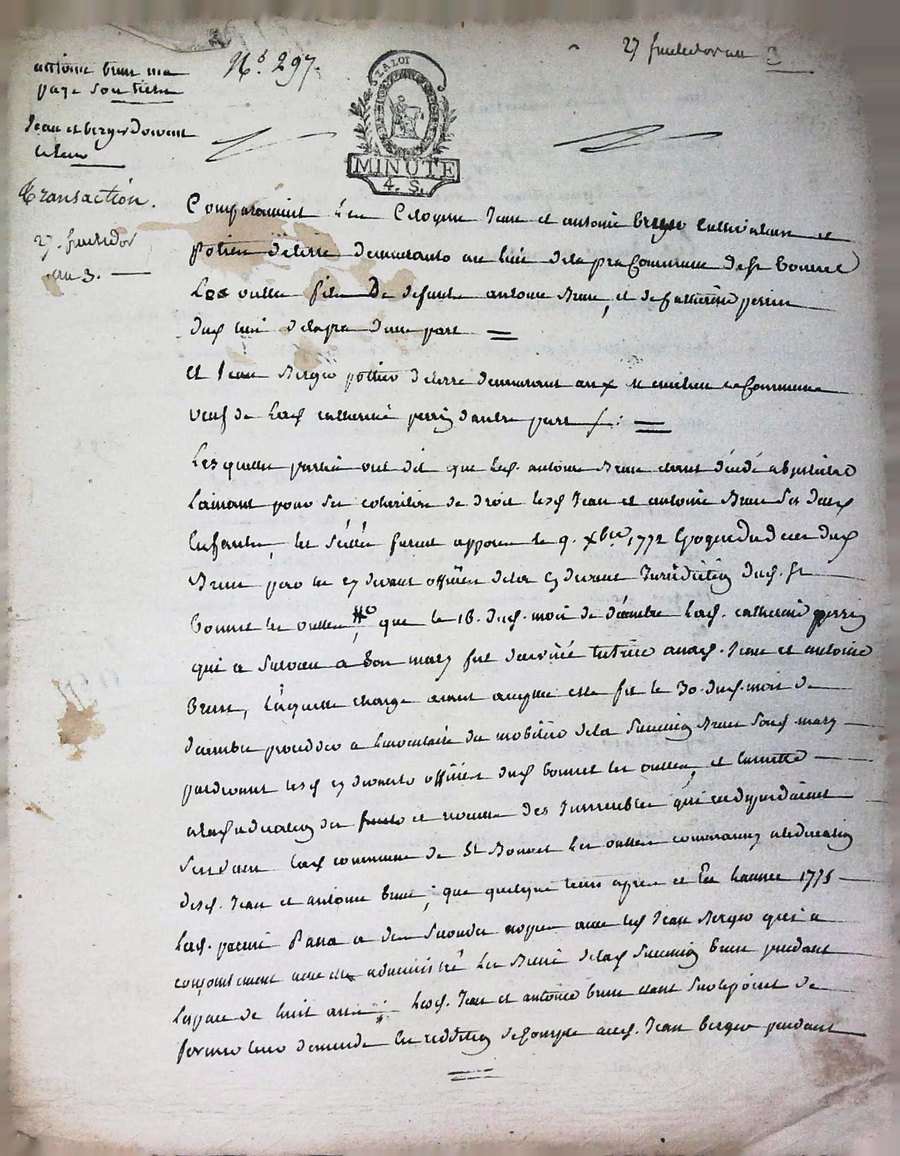 N.° 297.
27 fructidor an 3
antoine brun ma
paye son tiers
Jean et berger doivent
le leur
LA LOI
MINUTE
4. S.
Transaction.
27. fructidor
an 3.
Comparaissent Les Citoyens Jean et antoine brun Cultivateurs et
Potiers de terre demeurants au lieu de la pnte Commune de St Bonnet
Les oulles fils De defunts antoine Brun, et de Catherine perrin
dud. lieu d'une part
et Jean Berger pottier de terre demeurant aux Commune
veuf de lad. catherine perrin d'autre part
Lesquelles parties ont dit que led. antoine Brun etant décédé abintestat
Laissant pour ses cohéritiers de droit lesd. Jean et antoine Brun ses deux
Enfants, les scellés furent apposés le 9. xbre 1772 Epoque du deces dud.
Brun par les cy devant officiers de la cy devant Jurisdiction dud. St
bonnet les oulles, que le 18. dud. mois de décembre Lad. catherine perrin
qui a survecu a son mary fut decernée tutrice auxd. Jean et antoine
Brun, Laquelle charge ayant acceptée elle fit le 30. dud. mois de
decembre proceder a L'inventaire du mobilier de la succession Brun Son d. mary
pardevant lesd. cy devants officiers dud. bonnet les oulles, et ensuite
a lad. des fruits et revenus des Immeubles qui en dependaient
Situés dans lad. commune de St Bonnet Les oulles
desd. Jean et antoine brun; que quelque tems apres et En Lannée 1775
Lad. perrin Passa a des secondes nopces avec led. Jean Berger qui a
conjointement avec elle administré Les Biens de lad. succession brun pendant
Lespace de huit années Lesd. Jean et antoine brun etant sur le point de
former leur demande En reddition de Compte aud. Jean berger pendant